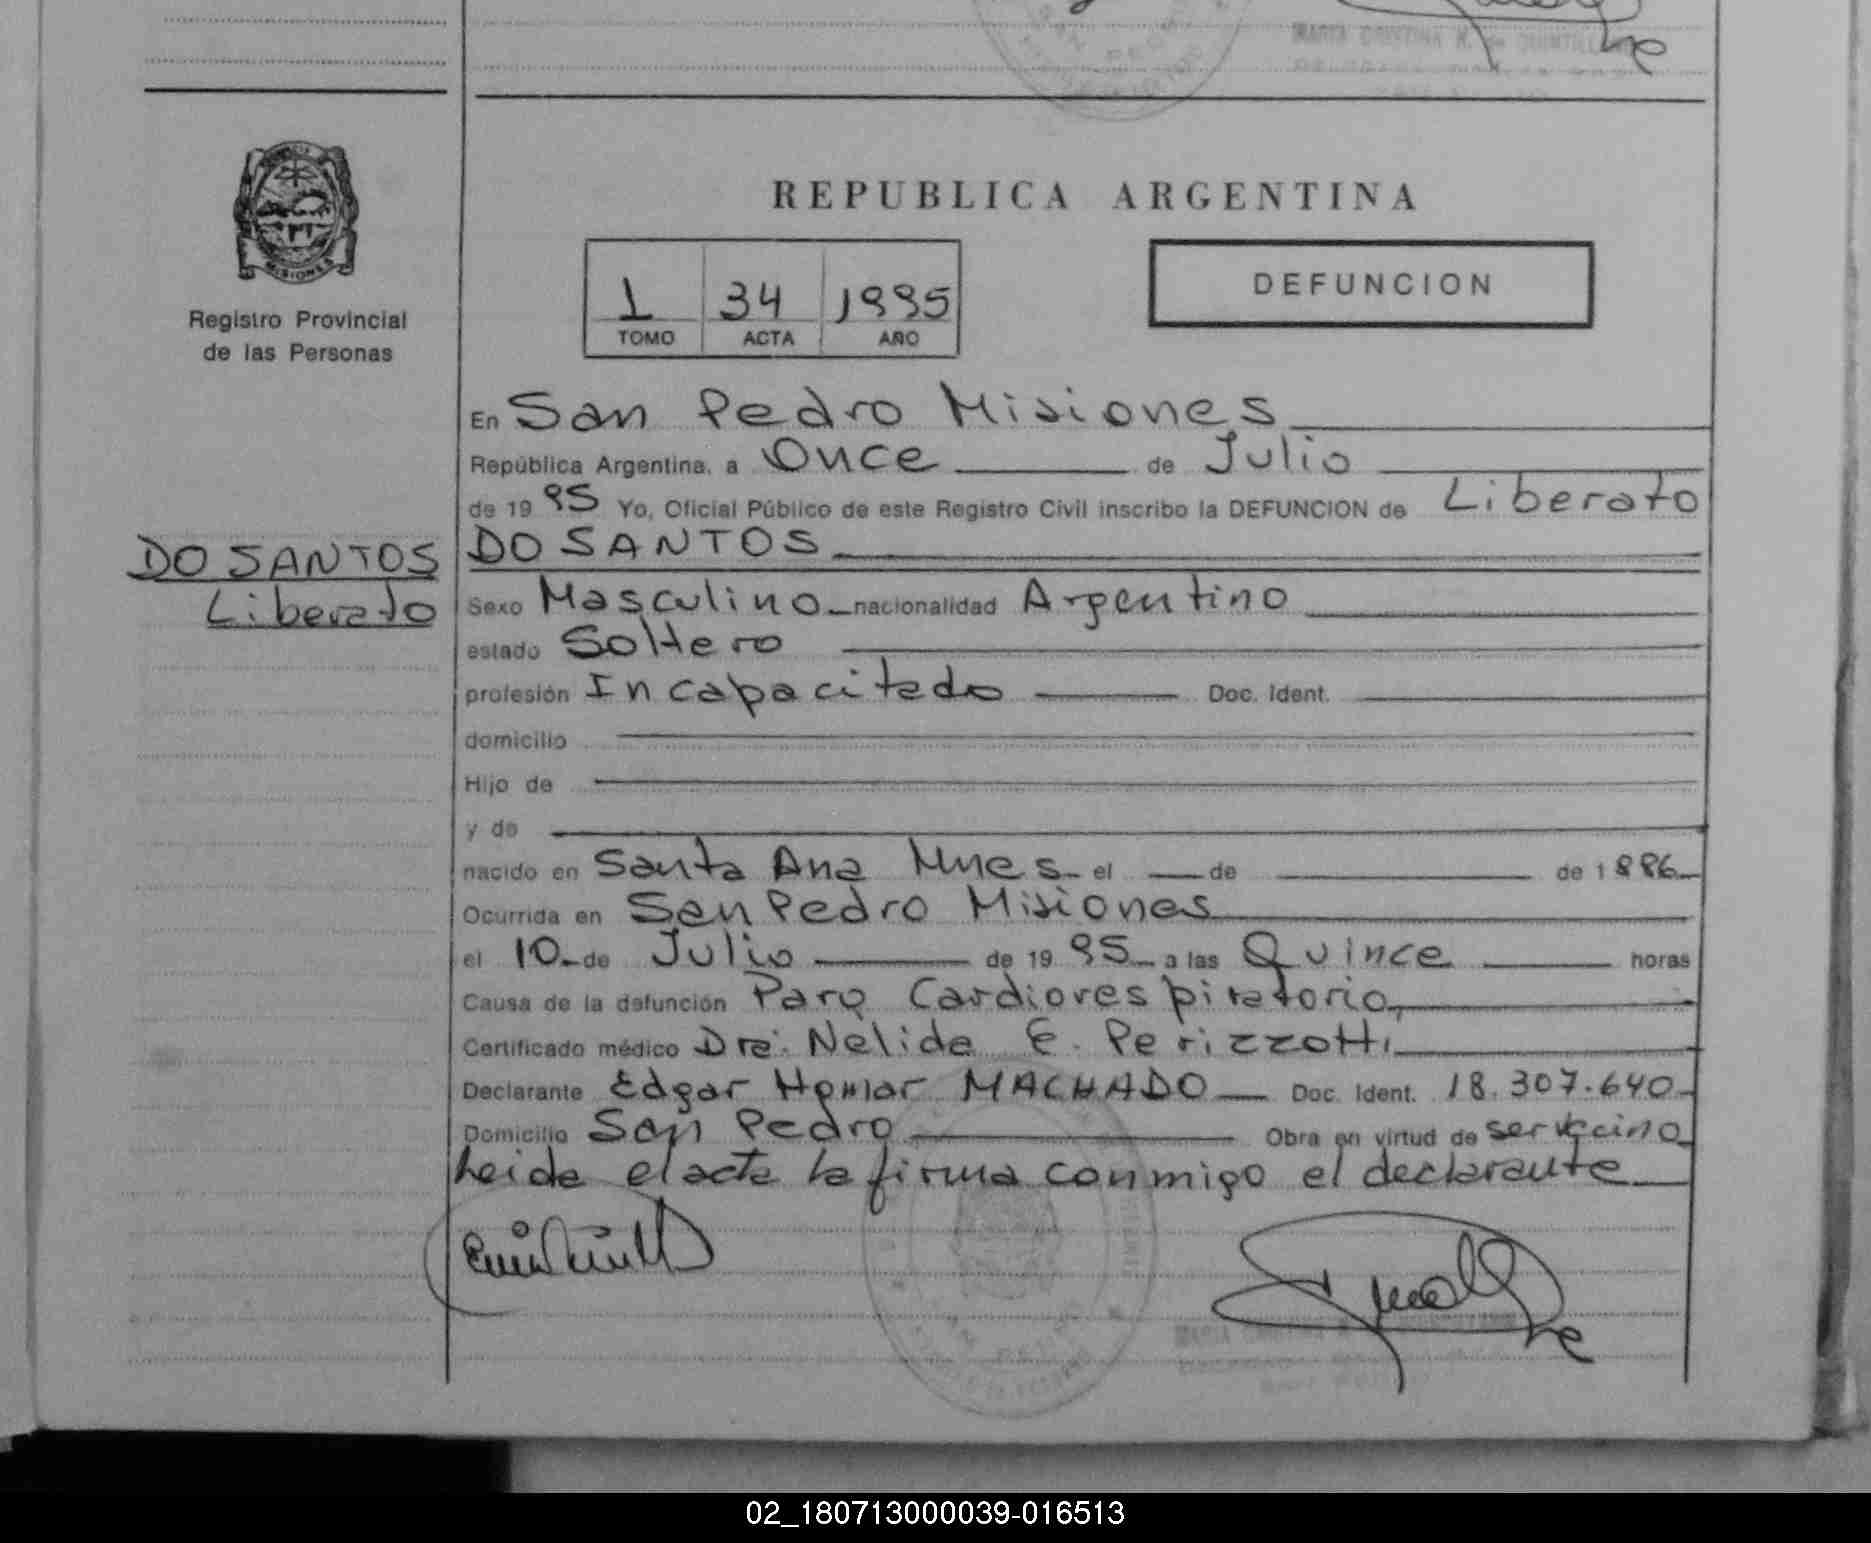 REPUBLICA ARGENTINA
MISIONES
Registro Provincial
de las Personas
1 34 1995
TOMO ACTA AÑO
DEFUNCION
En San Pedro Misiones
República Argentina, a Once de Julio
de 19 95 Yo, Oficial Público de este Registro Civil inscribo la DEFUNCION de Liberato
DO SANTOS
DO SANTOS
Liberato
Sexo Masculino nacionalidad Argentino
estado Soltero
profesión Incapacitado Doc. Ident.
domicilio
Hijo de
y de
nacido en Santa Ana Mnes el de de 1886
Ocurrida en San Pedro Misiones
el 10 de Julio de 19 95 a las Quince horas
Causa de la defunción Paro Cardiorespiratorio
Certificado médico Dra. Nelida E. Perizzotti
Declarante Edgar Homar MACHADO Doc. Ident. 18.307.640
Domicilio San Pedro Obra en virtud de ser vecino
Leida el acta la firma conmigo el declarante
02_180713000039-016513